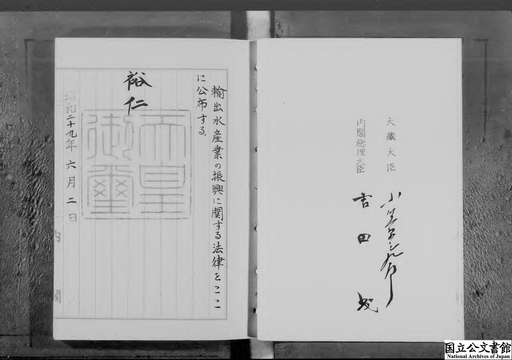 大藏大臣
小笠原三九郎
内閣総理大臣
吉田茂
輸出水産業の振興に関する法律をここ
に公布する
裕仁
天皇御璽
昭和二十九年六月二日
国立公文書館
National Archives of Japan